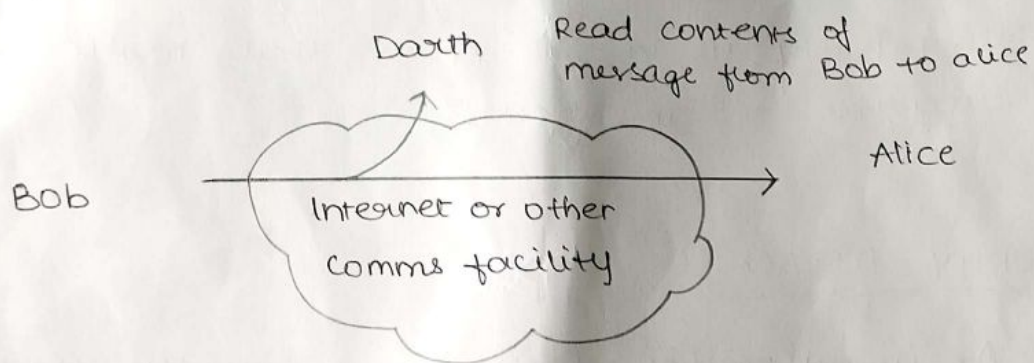 Darth
Read contents of
message from Bob to alice
Alice
Bob
Internet or other
comms facility